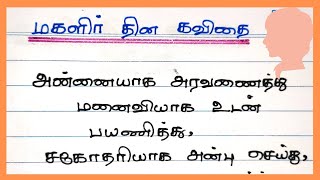 மகளிர் தின கவிதை
அன்னையாக அரவணைத்து
மனைவியாக உடன்
பயணித்து,
சகோதரியாக அன்பு செய்து,